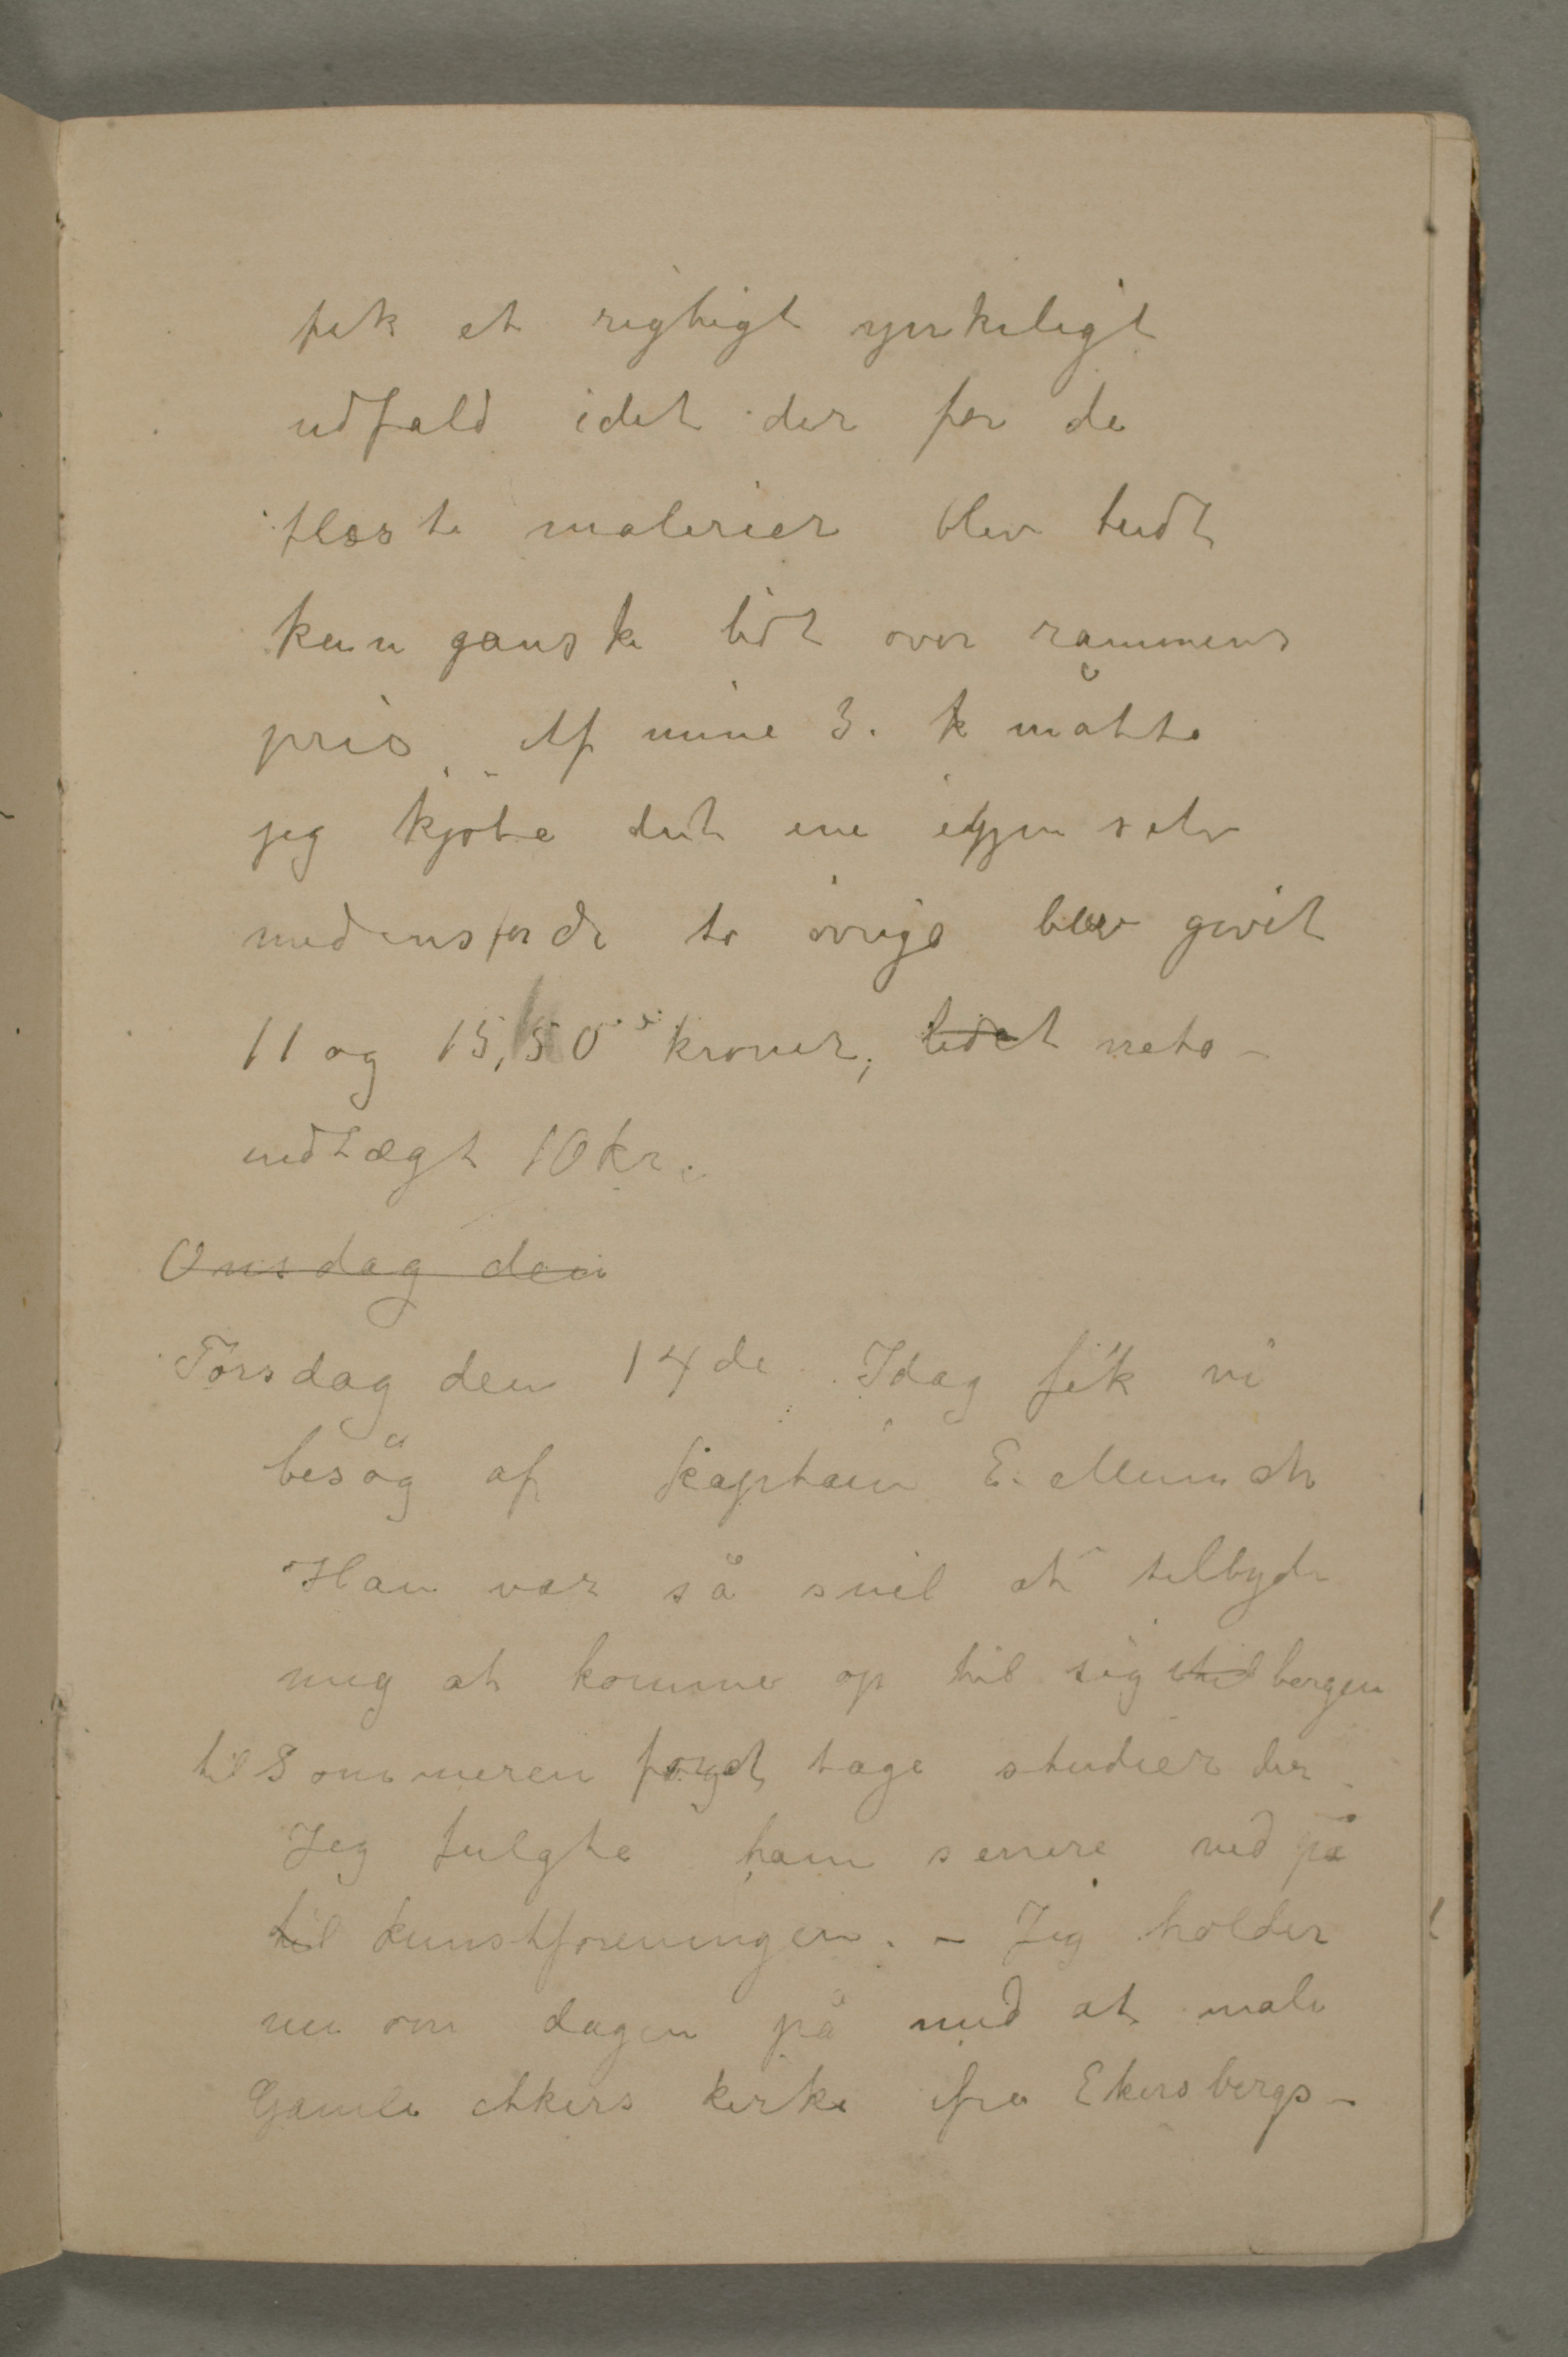 fik et rigtigt ynkeligt
udfald idet der for de
fleste malerier blev budt
kun ganske lidt over rammens
pris. Af mine 3. måtte
jeg kjøbe det ene igjen selv
medens for de to øvrige blev givet
11 og 15,50 kroner, lidet neto-
indtægt 10 kr.
Onsdag den
Torsdag den 14de. Idag fik vi
besög af kaptain E. Munch
Han var så snil at tilbyde
mig at komme op til sig til bergen
til Sommeren for at tage studier der.
Jeg fulgte ham senere ned på
til kunstforeningen. – Jeg holder
nu om dagen på med at male
Gamle Akers kirke ifra Ekersbergs-